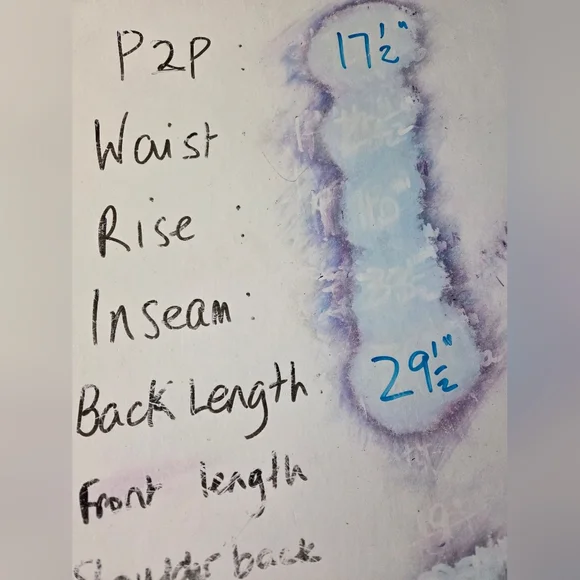 P2P : 17 1/2"
Waist :
Rise :
Inseam :
Back Length : 29 1/2"
Front length
Shoulder back